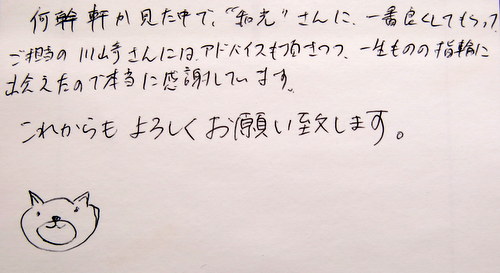 何幹軒か見た中で、"和光"さんに、一番良くしてもらって、
ご担当の川崎さんには、アドバイスも頂きつつ、一生ものの指輪に
出会えたので本当に感謝しています。
これからもよろしくお願い致します。